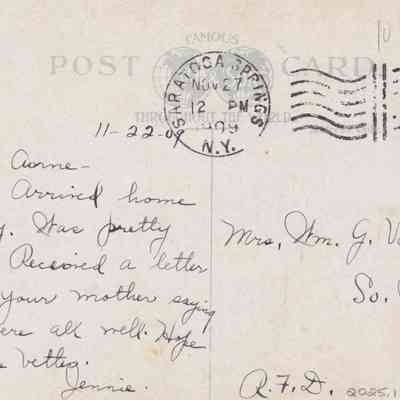 FAMOUS
POST CARD
THROUGHOUT THE WORLD
SARATOGA SPRINGS
NOV 27
12 PM
1909
N.Y.
10
11-22-09
Arrived home
y. Was pretty
Received a letter
your mother saying
ere all well. Hope
Jennie.
Mrs. Wm. G. V
So.
R.F.D.
2025.1